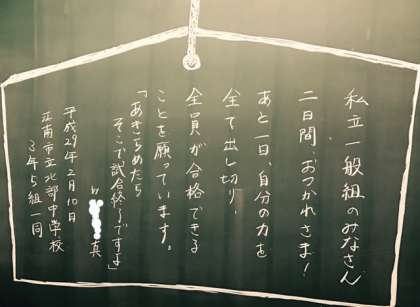 私立一般組のみなさん
二日間、おつかれさま！
あと一日、自分の力を
全て出し切り、
全員が合格できる
ことを願っています。
「あきらめたら
そこで試合終了ですよ」
by 真
平成29年2月10日
江南市立北部中学校
3年5組一同